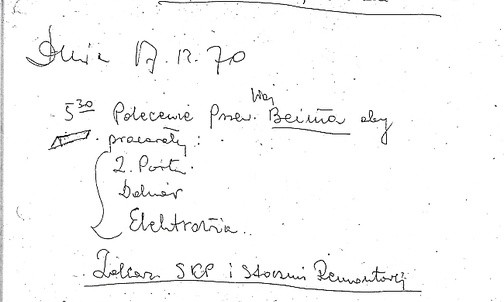 Dnia 17.12.70
5³⁰ Polecenie Przew. Woj Beima aby
pracowały:
Z. Portu.
Dalmor
Elektrownia.
Zakaz SKP i Stoczni Remontowej